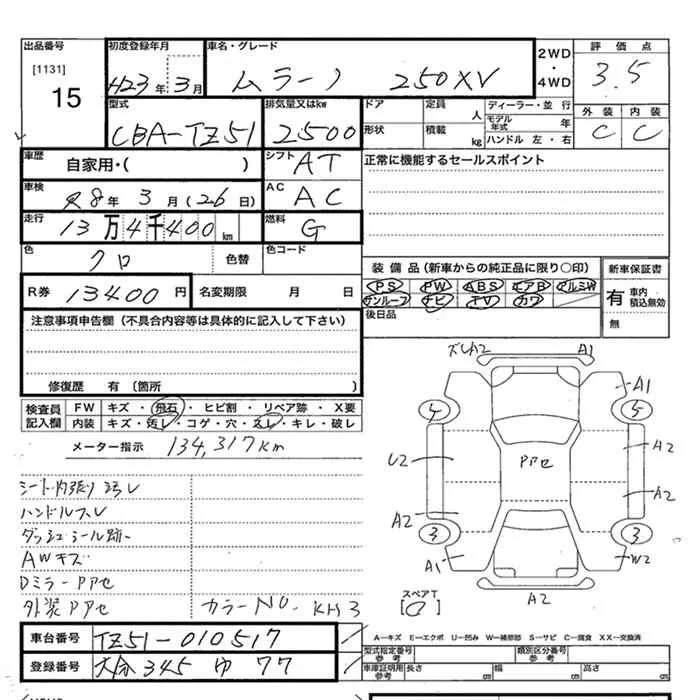 出品番号 初度登録年月 車名・グレード 2WD・4WD 評価点
[1131]
15 H23年3月 ムラーノ 250XV 3.5
型式 排気量又はkw ドア 定員 人 ディーラー・並行 外装 内装
CBA-TZ51 2500 形状 積載 kg モデル年式 年 ハンドル 左・右 C C
車歴 自家用・( ) シフト AT 正常に機能するセールスポイント
車検 R8年3月(26日) AC AC
走行 13万4千400km 燃料 G
色 クロ 色替 色コード
装備品(新車からの純正品に限り○印) 新車保証書
R券 13400円 名変期限 月 日 PS PW ABS エアB アルミW 有 車内 積込無効
サンルーフ ナビ TV カワ
後日品 無
注意事項申告欄(不具合内容等は具体的に記入して下さい)
修復歴 有 〔箇所 〕
検査員記入欄 FW キズ・飛石・ヒビ割・リペア跡・X要
内装 キズ・汚レ・コゲ・穴・スレ・キレ・破レ
メーター指示 134,317km
シート内張り汚レ
ハンドルスレ
ダッシュシール跡
AWキズ
Dミラー PPセ
外装PPセ カラーNO. KH3
ズレA2 A1
A1
4 5
U2 PPセ A2
A2
A2
3 3
A1 W2
A2
スペアT
[0]
車台番号 TZ51-010517
A―キズ E―エクボ U―凹み W―補修跡 S―サビ C―腐食 XX―交換済
登録番号 大分 345 ゆ 77
型式指定番号 参考 類別区分番号 参考
車庫証明用 参考 長さ cm 幅 cm 高さ cm